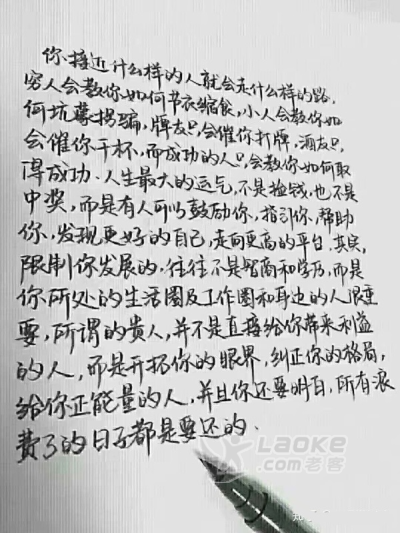 你接近什么样的人就会走什么样的路,
穷人会教你如何节衣缩食,小人会教你如
何坑蒙拐骗,牌友只会催你打牌,酒友只
会催你干杯,而成功的人只会教你如何取
得成功.人生最大的运气,不是捡钱,也不是
中奖,而是有人可以鼓励你,指引你,帮助
你,发现更好的自己,走向更高的平台.其实,
限制你发展的.往往不是智商和学历,而是
你所处的生活圈及工作圈和身边的人很重
要,所谓的贵人,并不是直接给你带来利益
的人,而是开拓你的眼界,纠正你的格局,
给你正能量的人,并且你还要明白,所有浪
费了的日子都是要还的.
LAOKE
.com老客